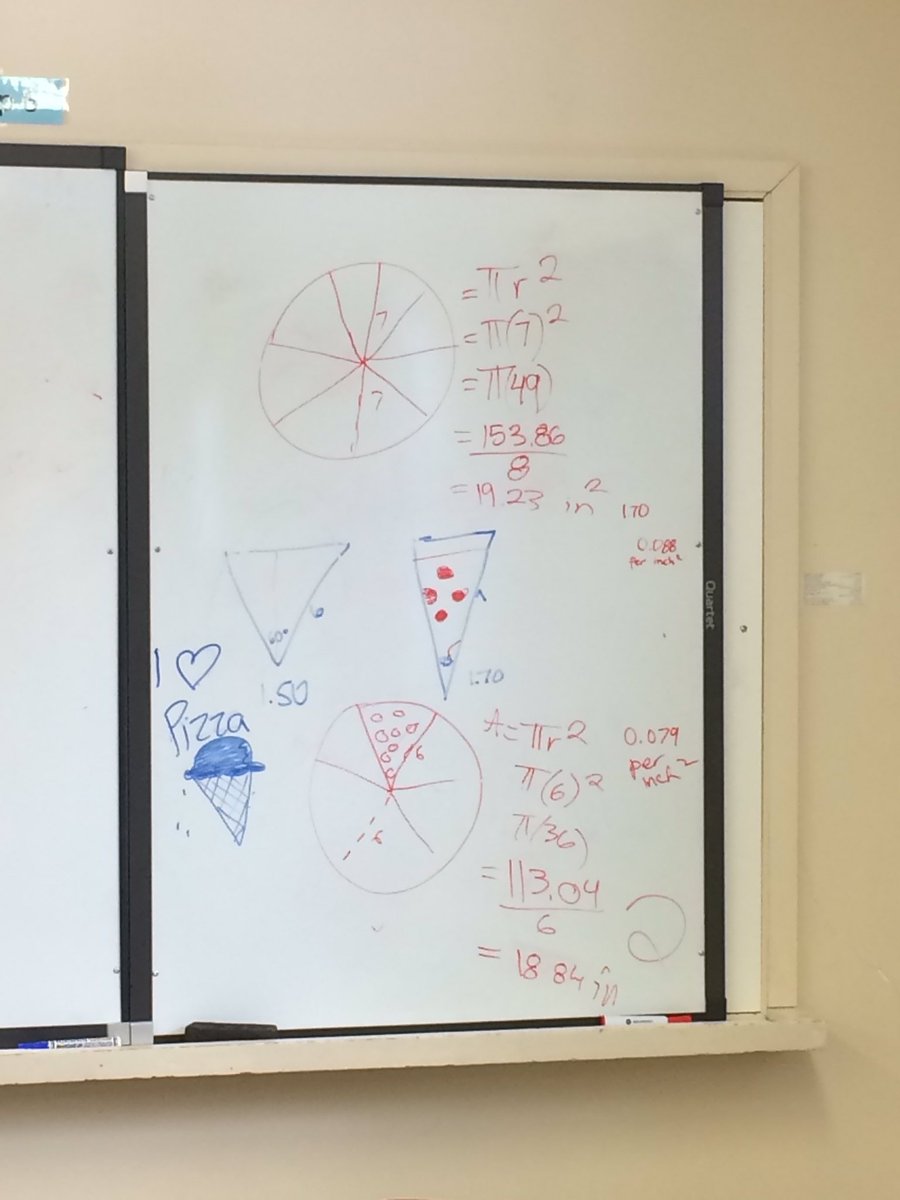 7
7
= πr²
= π(7)²
= π(49)
= 153.86
8
= 19.23 in²
1.70
0.088
per inch²
60°
6
1.50
1.70
Quartet
I ♡
Pizza
6
6
A = πr²
π(6)²
π(36)
= 113.04
6
= 18.84 in
2
0.079
per
inch²